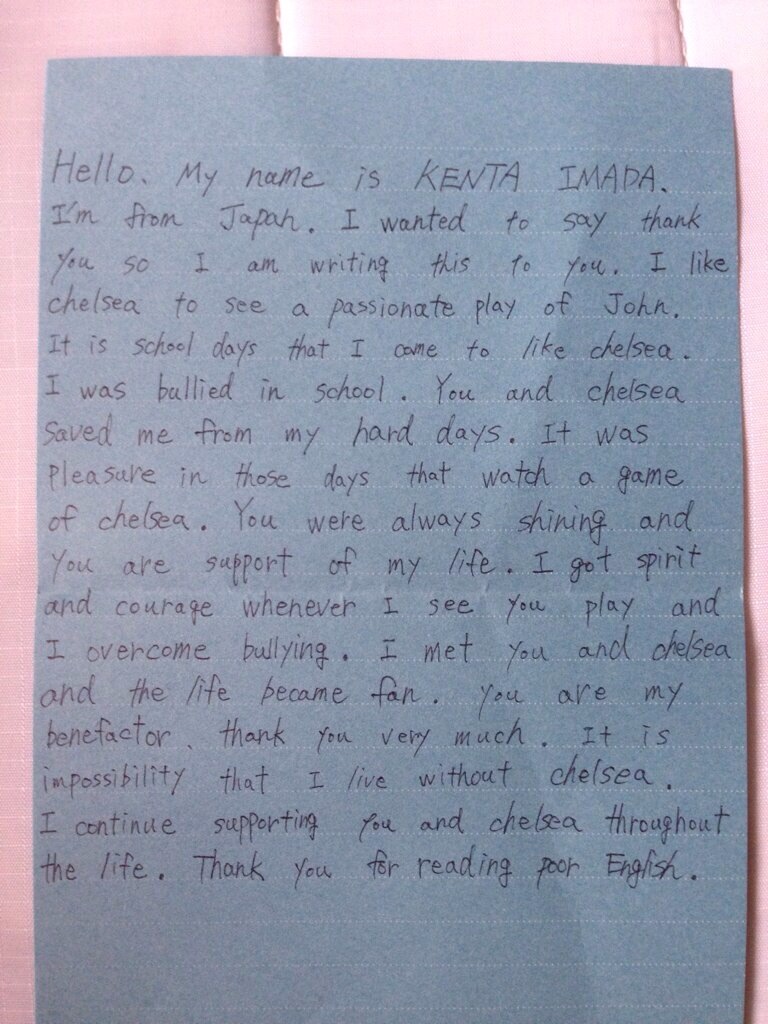 Hello. My name is KENTA IMADA.
I'm from Japan. I wanted to say thank
you so I am writing this to you. I like
chelsea to see a passionate play of John.
It is school days that I come to like chelsea.
I was bullied in school. You and chelsea
saved me from my hard days. It was
pleasure in those days that watch a game
of chelsea. You were always shining and
you are support of my life. I got spirit
and courage whenever I see you play and
I overcome bullying. I met you and chelsea
and the life became fan. you are my
benefactor. thank you very much. It is
impossibility that I live without chelsea.
I continue supporting you and chelsea throughout
the life. Thank you for reading poor English.